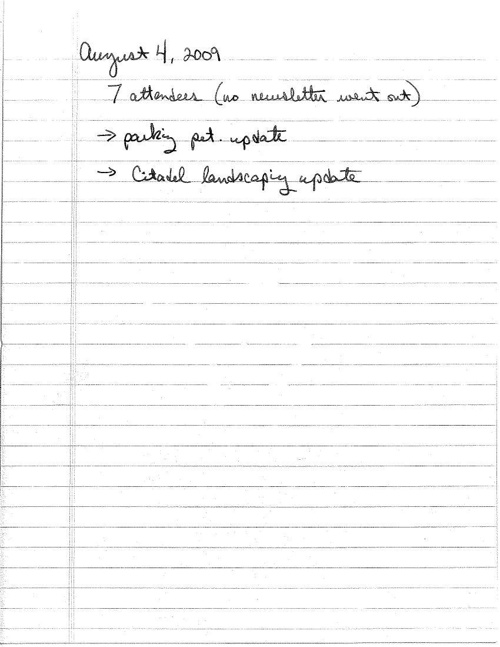 August 4, 2009
7 attendees (no newsletter went out)
→ parking pet. update
→ Citadel landscaping update